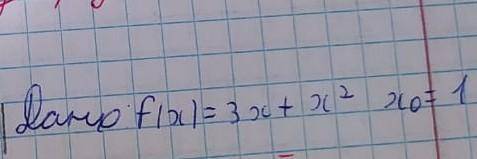 Дано f(x)=3x+x² x₀=1